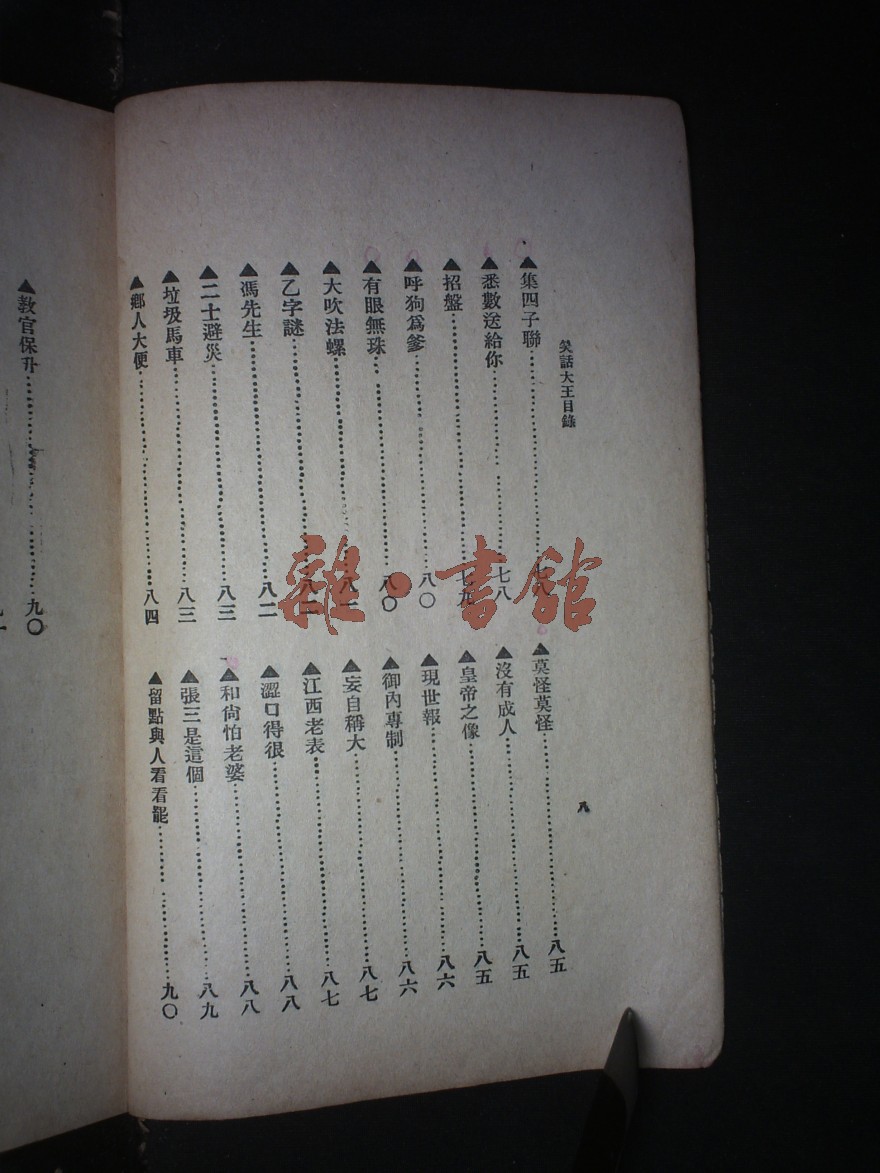 笑話大王目錄
▲集四子聯⋯⋯⋯⋯七八
▲悉數送給你⋯⋯⋯⋯七八
▲招盤⋯⋯⋯⋯七九
▲呼狗爲爹⋯⋯⋯⋯八〇
▲有眼無珠⋯⋯⋯⋯八〇
▲大吹法螺⋯⋯⋯⋯八一
▲乙字謎⋯⋯⋯⋯八二
▲馮先生⋯⋯⋯⋯八二
▲二士避災⋯⋯⋯⋯八三
▲垃圾馬車⋯⋯⋯⋯八三
▲鄉人大便⋯⋯⋯⋯八四
▲莫怪莫怪⋯⋯⋯⋯八五
▲沒有成人⋯⋯⋯⋯八五
▲皇帝之像⋯⋯⋯⋯八五
▲現世報⋯⋯⋯⋯八六
▲御內專制⋯⋯⋯⋯八六
▲妄自稱大⋯⋯⋯⋯八七
▲江西老表⋯⋯⋯⋯八七
▲澀口得很⋯⋯⋯⋯八八
▲和尙怕老婆⋯⋯⋯⋯八八
▲張三是這個⋯⋯⋯⋯八九
▲留點與人看看罷⋯⋯⋯⋯九〇
八
▲教官保升⋯⋯⋯⋯九〇
雜·書館